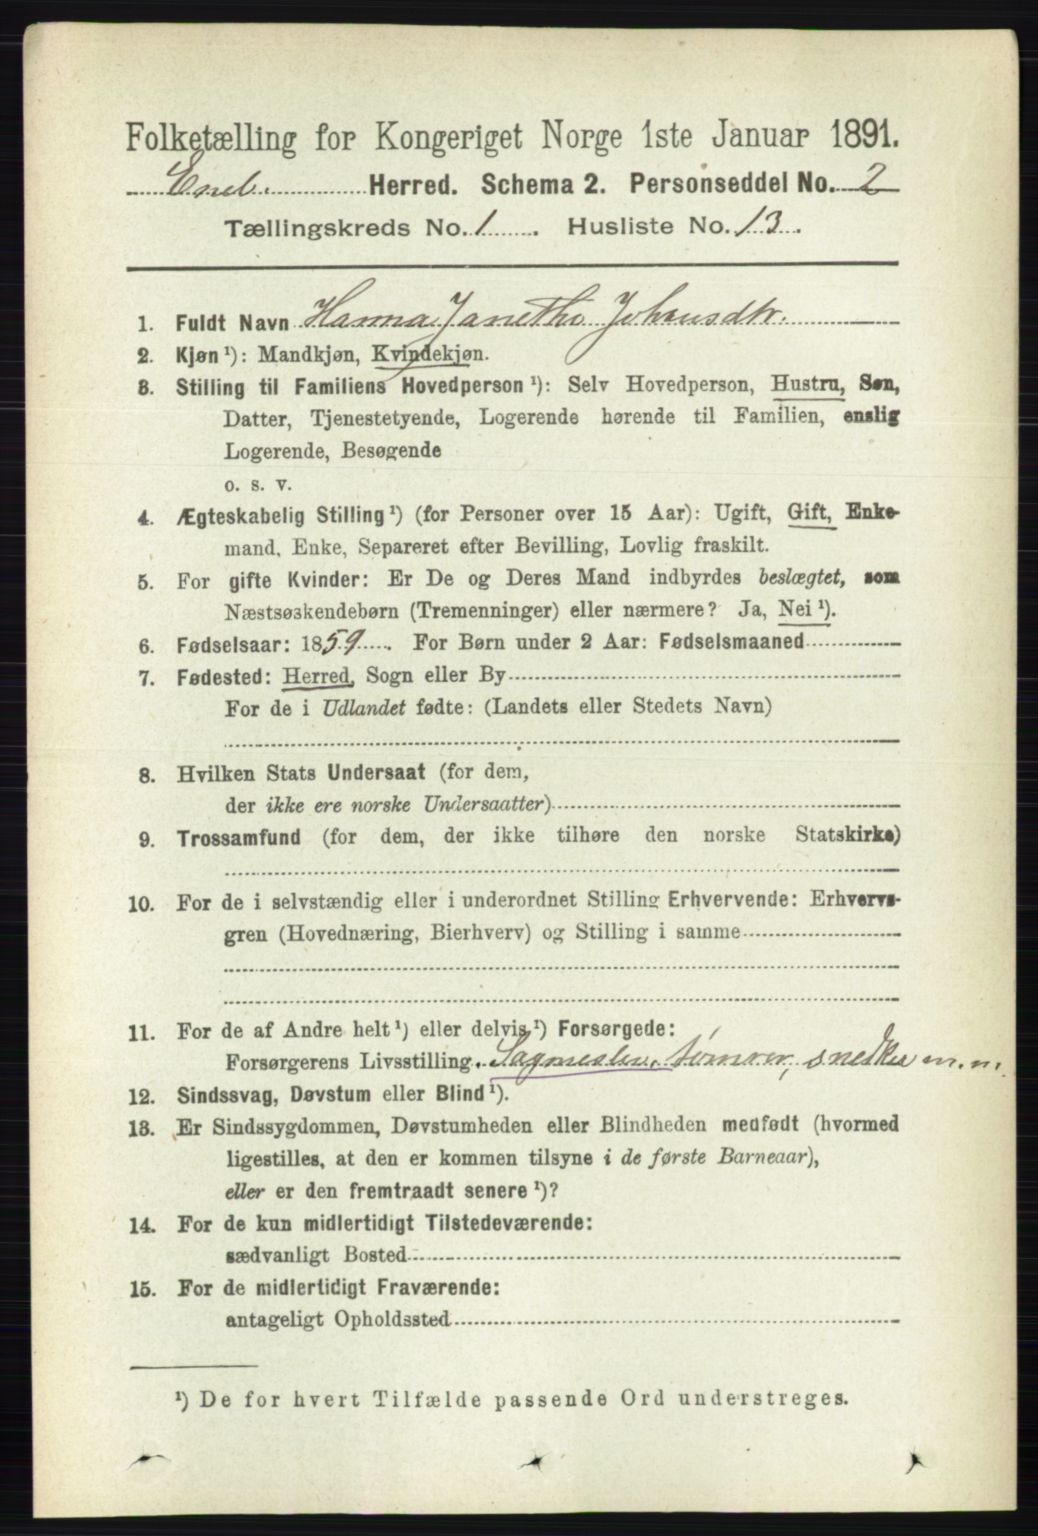 Folketælling for Kongeriget Norge 1ste Januar 1891.
Eneb. Herred. Schema 2. Personseddel No. 2
Tællingskreds No. 1 . Husliste No. 13 .
1. Fuldt Navn Hanna Janetha Johansdtr.
2. Kjøn ¹): Mandkjøn, Kvindekjøn.
3. Stilling til Familiens Hovedperson ¹): Selv Hovedperson, Hustru, Søn,
Datter, Tjenestetyende, Logerende hørende til Familien, enslig
Logerende, Besøgende
o. s. v.
4. Ægteskabelig Stilling ¹) (for Personer over 15 Aar): Ugift, Gift, Enke-
mand, Enke, Separeret efter Bevilling, Lovlig fraskilt.
5. For gifte Kvinder: Er De og Deres Mand indbyrdes beslægtet, som
Næstsøskendebørn (Tremenninger) eller nærmere? Ja, Nei ¹).
6. Fødselsaar: 1859. For Børn under 2 Aar: Fødselsmaaned
7. Fødested: Herred, Sogn eller By
For de i Udlandet fødte: (Landets eller Stedets Navn)
8. Hvilken Stats Undersaat (for dem,
der ikke ere norske Undersaatter)
9. Trossamfund (for dem, der ikke tilhøre den norske Statskirke)
10. For de i selvstændig eller i underordnet Stilling Erhvervende: Erhvervs-
gren (Hovednæring, Bierhverv) og Stilling i samme
11. For de af Andre helt ¹) eller delvis ¹) Forsørgede:
Forsørgerens Livsstilling. Sagmester, tømrer, snedker m. m.
12. Sindssvag, Døvstum eller Blind ¹).
13. Er Sindssygdommen, Døvstumheden eller Blindheden medfødt (hvormed
ligestilles, at den er kommen tilsyne i de første Barneaar),
eller er den fremtraadt senere ¹)?
14. For de kun midlertidigt Tilstedeværende:
sædvanligt Bosted
15. For de midlertidigt Fraværende:
antageligt Opholdssted
¹) De for hvert Tilfælde passende Ord understreges.